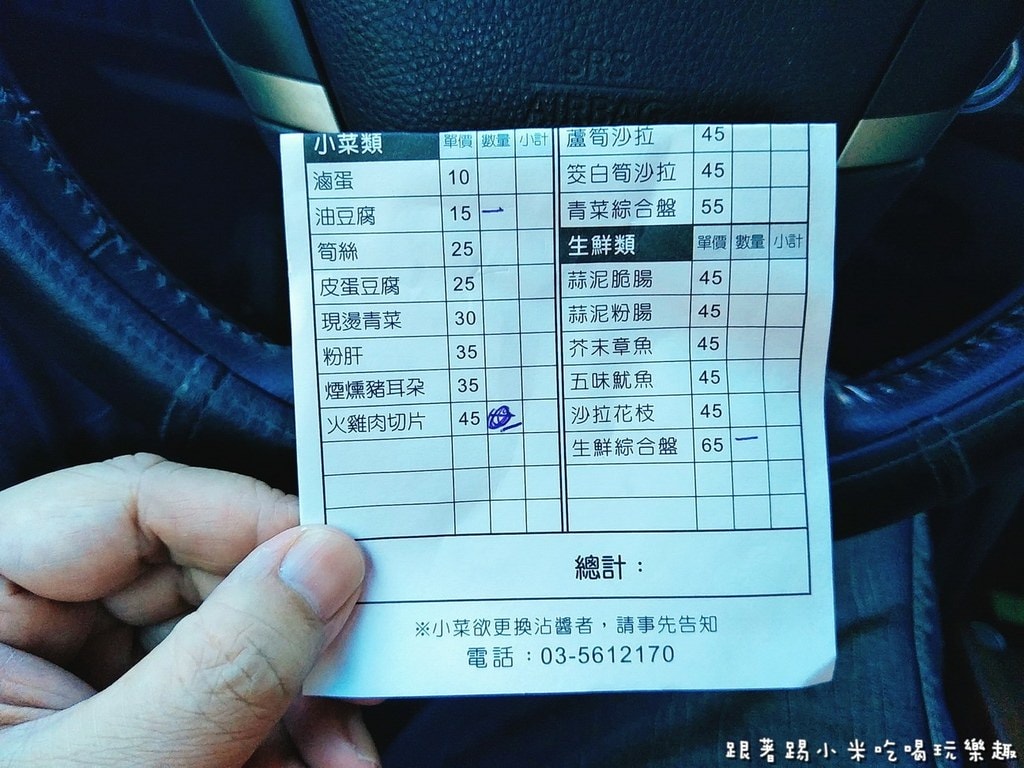 SRS
AIRBAG
小菜類 單價 數量 小計
滷蛋 10
油豆腐 15 一
筍絲 25
皮蛋豆腐 25
現燙青菜 30
粉肝 35
煙燻豬耳朵 35
火雞肉切片 45
蘆筍沙拉 45
筊白筍沙拉 45
青菜綜合盤 55
生鮮類 單價 數量 小計
蒜泥脆腸 45
蒜泥粉腸 45
芥末章魚 45
五味魷魚 45
沙拉花枝 45
生鮮綜合盤 65 一
總計：
※小菜欲更換沾醬者，請事先告知
電話：03-5612170
跟著踢小米吃喝玩樂趣